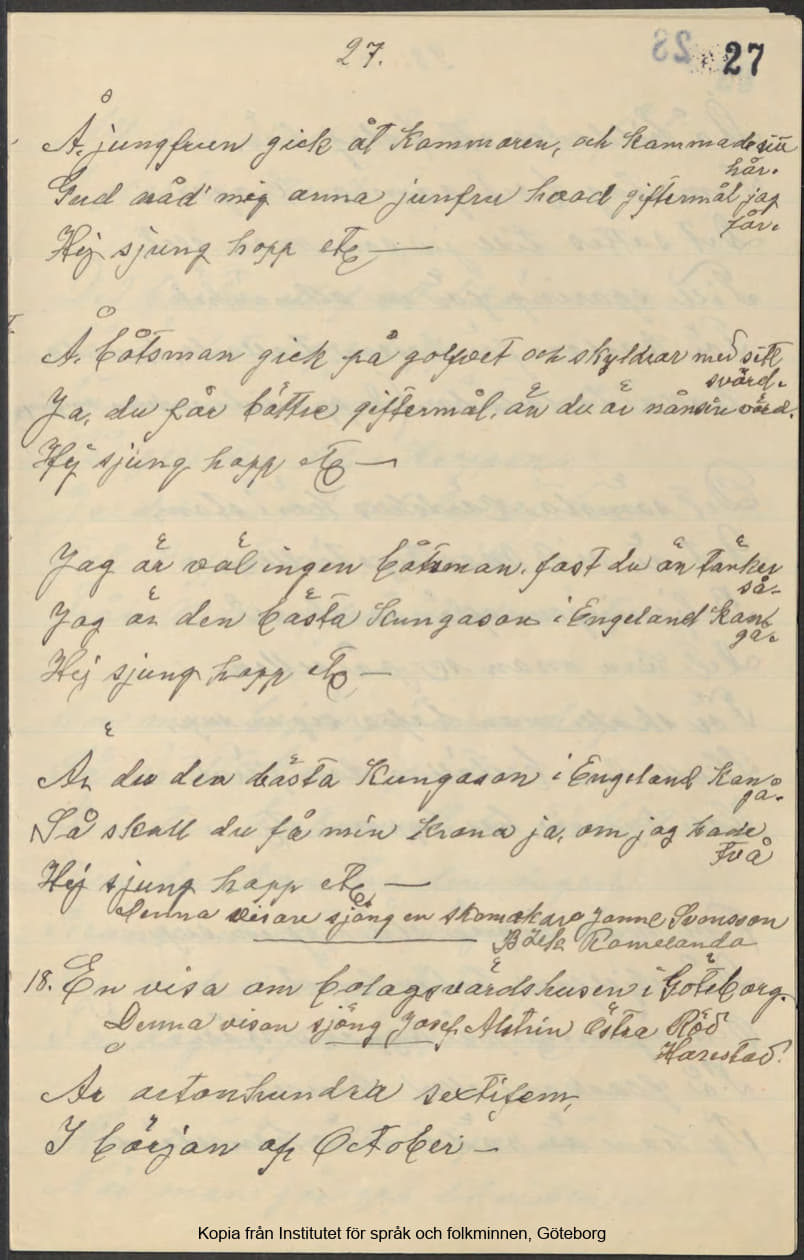 27.
28 27
Å, jungfrun gick åt Kammaren, och Kammade sitt
hår.
Gud nåd' mig arma junfru hvad giftermål jag
får.
Hej sjung hopp etc —
Å, båtsman gick på golfvet och skyldrar med sitt
svärd.
Ja, du får bättre giftermål, än du är nånsin värd.
Hej sjung hopp etc —
Jag är väl ingen båtsman, fast du än tänker
så.
Jag är den bästa Kungason i Engeland Kan
gå.
Hej sjung hopp etc —
Är du den bästa Kungason i Engeland Kan
gå.
Så skall du få min Krona ja, om jag hade
två
Hej sjung hopp etc —
Denna visan sjöng en skomakare Janne Svensson
Bäck Romelanda
18. En visa om bolagsvärdshusen i Göteborg.
Denna visan sjöng Josef Alstrin Östra Röd
Harestad.
År adertonhundra sextifem,
I början af October —
Kopia från Institutet för språk och folkminnen, Göteborg